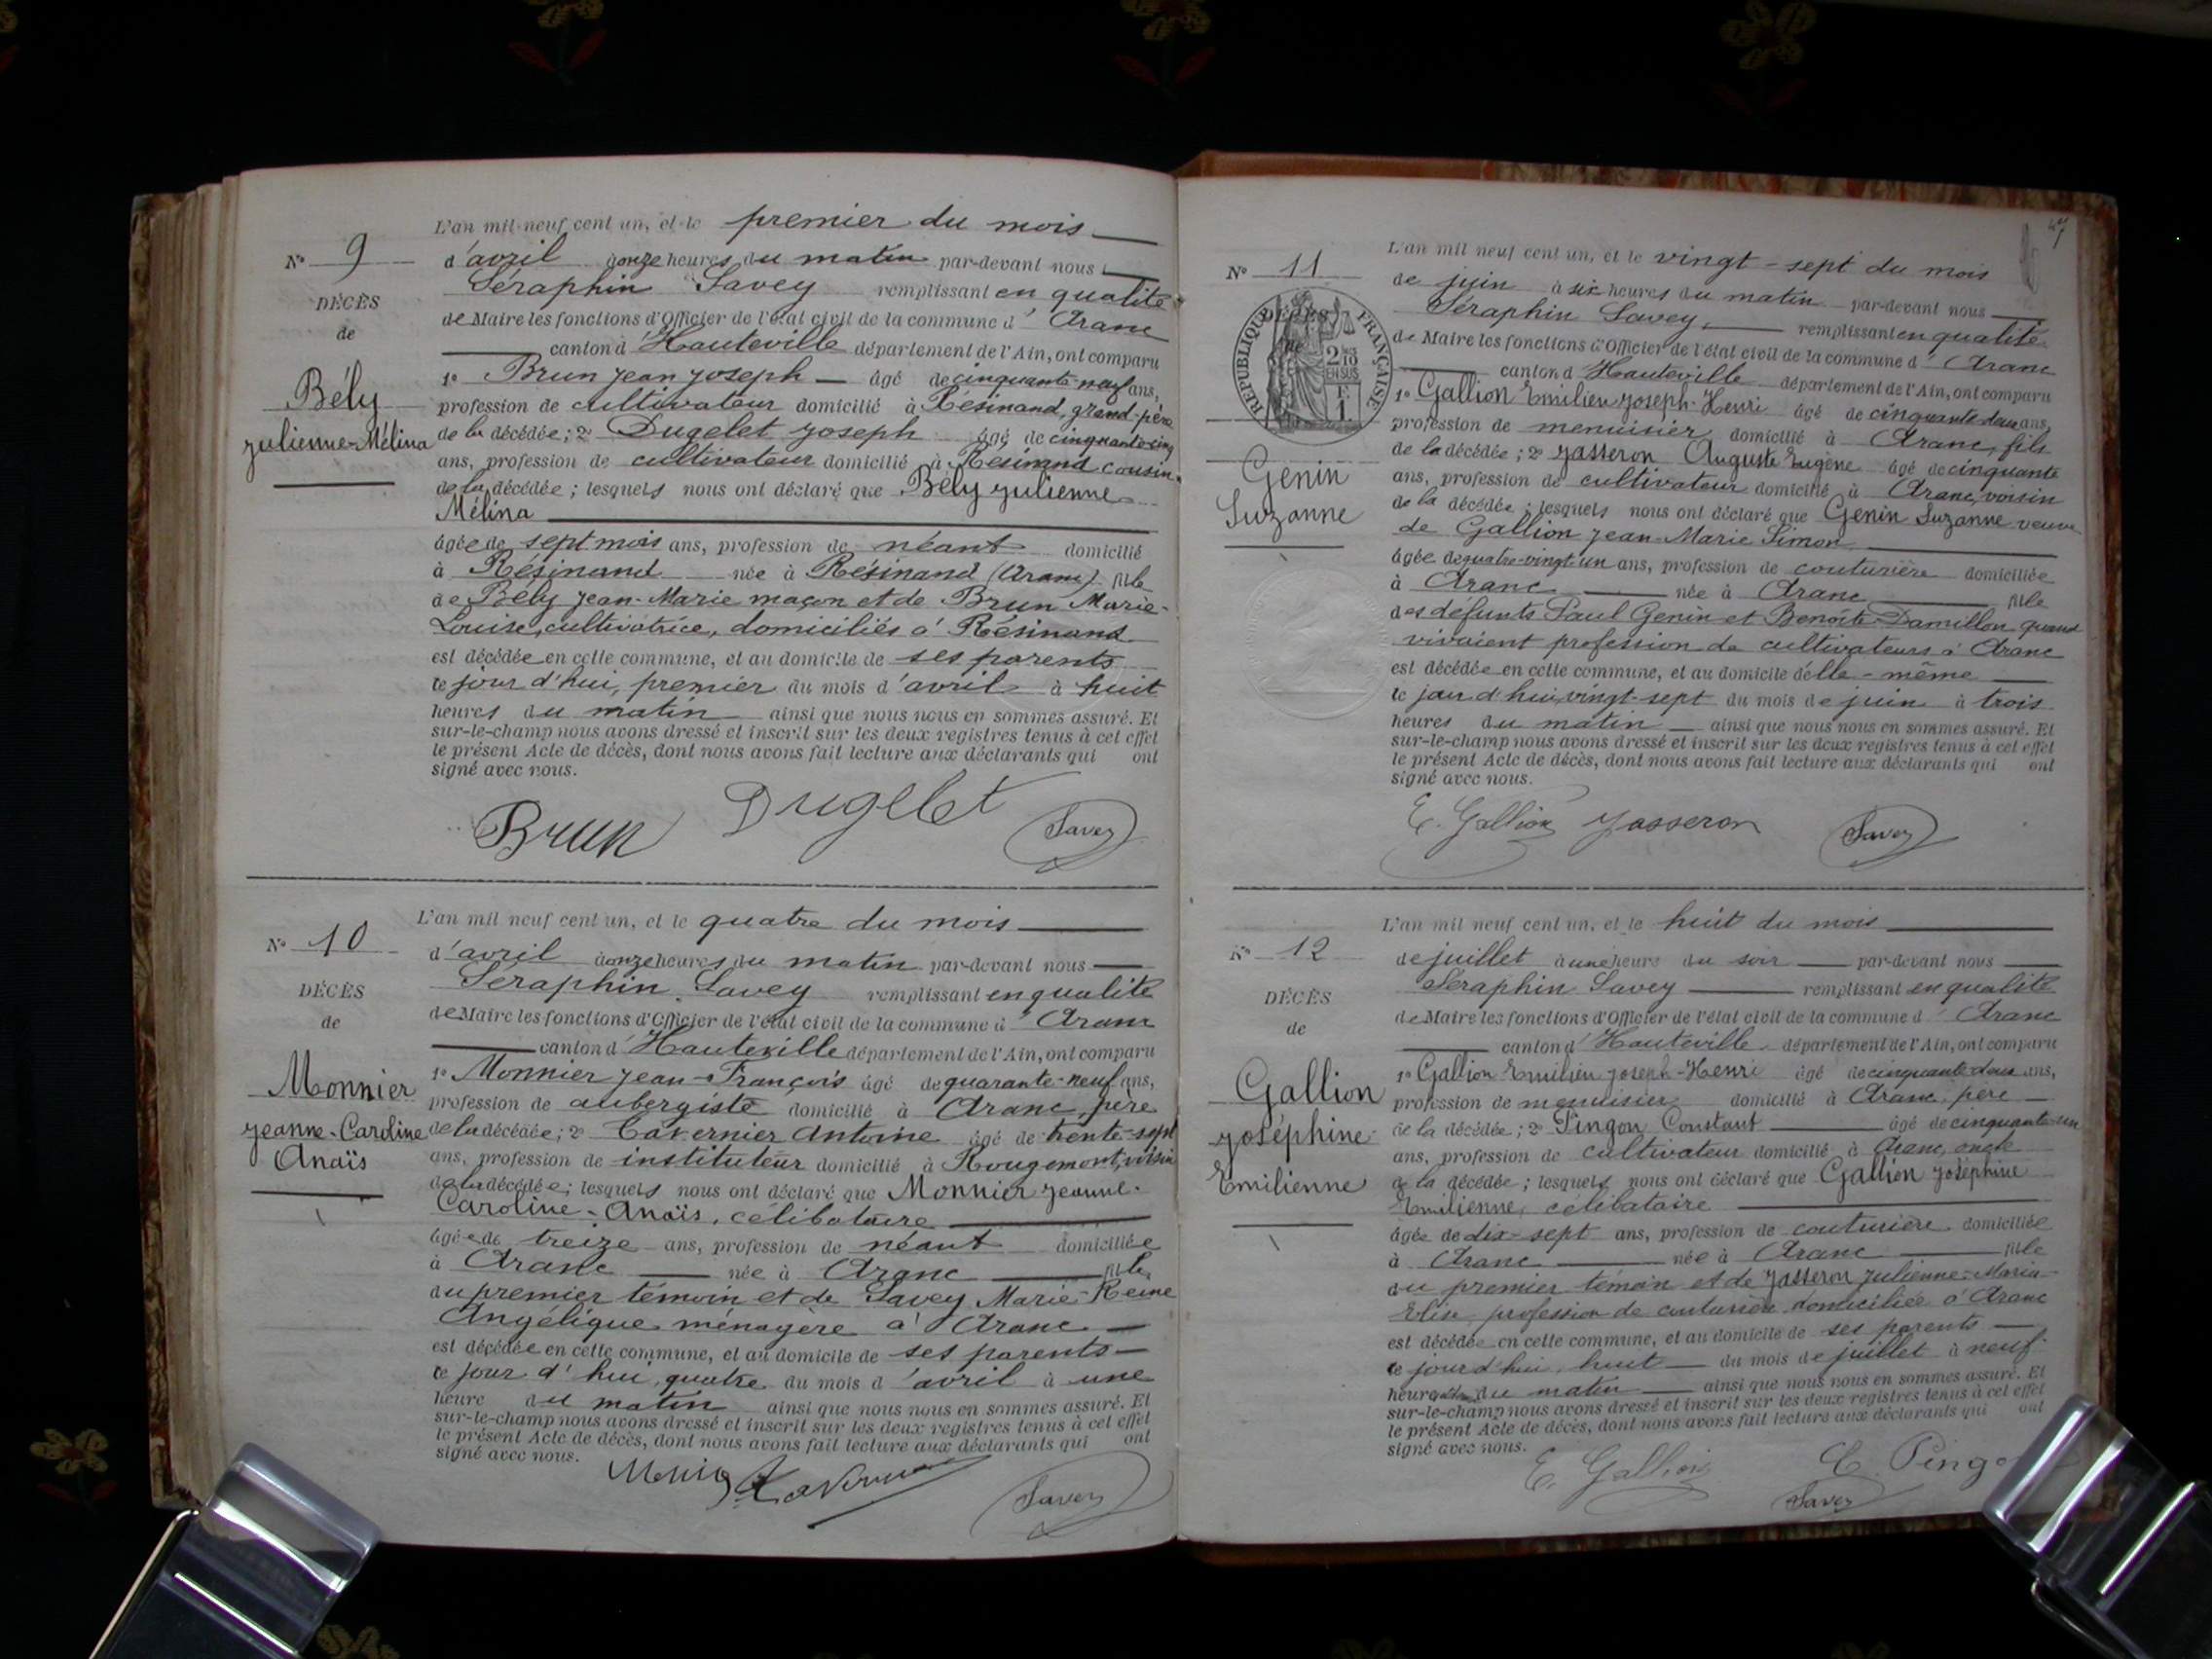 L'an mil neuf cent un, et le premier du mois
N° 9
d'avril à onze heures du matin par-devant nous
Séraphin Savey remplissant en qualité
DÉCÈS
de Maire les fonctions d'Officier de l'état civil de la commune d' Aranc
de
canton d'Hauteville département de l'Ain, ont comparu
1° Brun Jean Joseph âgé de cinquante-neuf ans,
Bély
profession de cultivateur domicilié à Résinand, grand-père
Julienne-Mélina
de la décédée; 2° Dugelet Joseph âgé de cinquante-cinq
ans, profession de cultivateur domicilié à Résinand cousin
de la décédée; lesquels nous ont déclaré que Bély Julienne
Mélina
âgée de sept mois ans, profession de néant domicilié
à Résinand née à Résinand (Aranc) fille
de Bély Jean-Marie maçon et de Brun Marie-
Louise, cultivatrice, domiciliés à Résinand
est décédée en cette commune, et au domicile de ses parents
ce jour d'hui, premier du mois d'avril à huit
heures du matin ainsi que nous nous en sommes assuré. Et
sur-le-champ nous avons dressé et inscrit sur les deux registres tenus à cet effet
le présent Acte de décès, dont nous avons fait lecture aux déclarants qui ont
signé avec nous.
Brun Dugelet Savey
L'an mil neuf cent un, et le quatre du mois
N° 10
d'avril à onze heures du matin par-devant nous
Séraphin Savey remplissant en qualité
DÉCÈS
de Maire les fonctions d'Officier de l'état civil de la commune d' Aranc
de
canton d'Hauteville département de l'Ain, ont comparu
1° Monnier Jean-François âgé de quarante-neuf ans,
Monnier
profession de aubergiste domicilié à Aranc, père
Jeanne-Caroline
de la décédée; 2° Tavernier Antoine âgé de trente-sept
Anaïs
ans, profession de instituteur domicilié à Rougemont, voisin
de la décédée; lesquels nous ont déclaré que Monnier Jeanne-
Caroline-Anaïs, célibataire
âgée de treize ans, profession de néant domiciliée
à Aranc née à Aranc fille
du premier témoin et de Savey Marie-Reine
Angélique ménagère à Aranc
est décédée en cette commune, et au domicile de ses parents
ce jour d'hui, quatre du mois d'avril à une
heure du matin ainsi que nous nous en sommes assuré. Et
sur-le-champ nous avons dressé et inscrit sur les deux registres tenus à cet effet
le présent Acte de décès, dont nous avons fait lecture aux déclarants qui ont
signé avec nous.
Savey
47
L'an mil neuf cent un, et le vingt-sept du mois
N° 11
de juin à six heures du matin par-devant nous
Séraphin Savey, remplissant en qualité
DÉCÈS
de
RÉPUBLIQUE FRANÇAISE
2/10 EN SUS
F. 1
de Maire les fonctions d'Officier de l'état civil de la commune d' Aranc
canton d'Hauteville département de l'Ain, ont comparu
1° Gallion Emilien Joseph-Henri âgé de cinquante-deux ans,
profession de menuisier domicilié à Aranc, fils
Genin
de la décédée; 2° Jasseron Auguste Eugène âgé de cinquante
Suzanne
ans, profession de cultivateur domicilié à Aranc, voisin
de la décédée; lesquels nous ont déclaré que Genin Suzanne veuve
de Gallion Jean-Marie Simon
âgée de quatre-vingt-un ans, profession de couturière domiciliée
à Aranc née à Aranc fille
des défunts Paul Genin et Benoîte Damillon quand
vivaient profession de cultivateurs à Aranc
est décédée en cette commune, et au domicile d'elle-même
ce jour d'hui vingt-sept du mois de juin à trois
heures du matin ainsi que nous nous en sommes assuré. Et
sur-le-champ nous avons dressé et inscrit sur les deux registres tenus à cet effet
le présent Acte de décès, dont nous avons fait lecture aux déclarants qui ont
signé avec nous.
E. Gallion Jasseron Savey
L'an mil neuf cent un, et le huit du mois
N° 12
de juillet à une heure du soir par-devant nous
Séraphin Savey remplissant en qualité
DÉCÈS
de Maire les fonctions d'Officier de l'état civil de la commune d' Aranc
de
canton d'Hauteville département de l'Ain, ont comparu
1° Gallion Emilien Joseph-Henri âgé de cinquante-deux ans,
Gallion
profession de menuisier domicilié à Aranc, père
Joséphine
de la décédée; 2° Pingon Constant âgé de cinquante-un
Emilienne
ans, profession de cultivateur domicilié à Aranc, oncle
de la décédée; lesquels nous ont déclaré que Gallion Joséphine
Emilienne, célibataire
âgée de dix-sept ans, profession de couturière domiciliée
à Aranc née à Aranc fille
du premier témoin et de Jasseron Julienne-Marie-
Elise, profession de couturière domiciliée à Aranc
est décédée en cette commune, et au domicile de ses parents
ce jour d'hui, huit du mois de juillet à neuf
heures du matin ainsi que nous nous en sommes assuré. Et
sur-le-champ nous avons dressé et inscrit sur les deux registres tenus à cet effet
le présent Acte de décès, dont nous avons fait lecture aux déclarants qui ont
signé avec nous.
E. Gallion C. Pingo
Savey